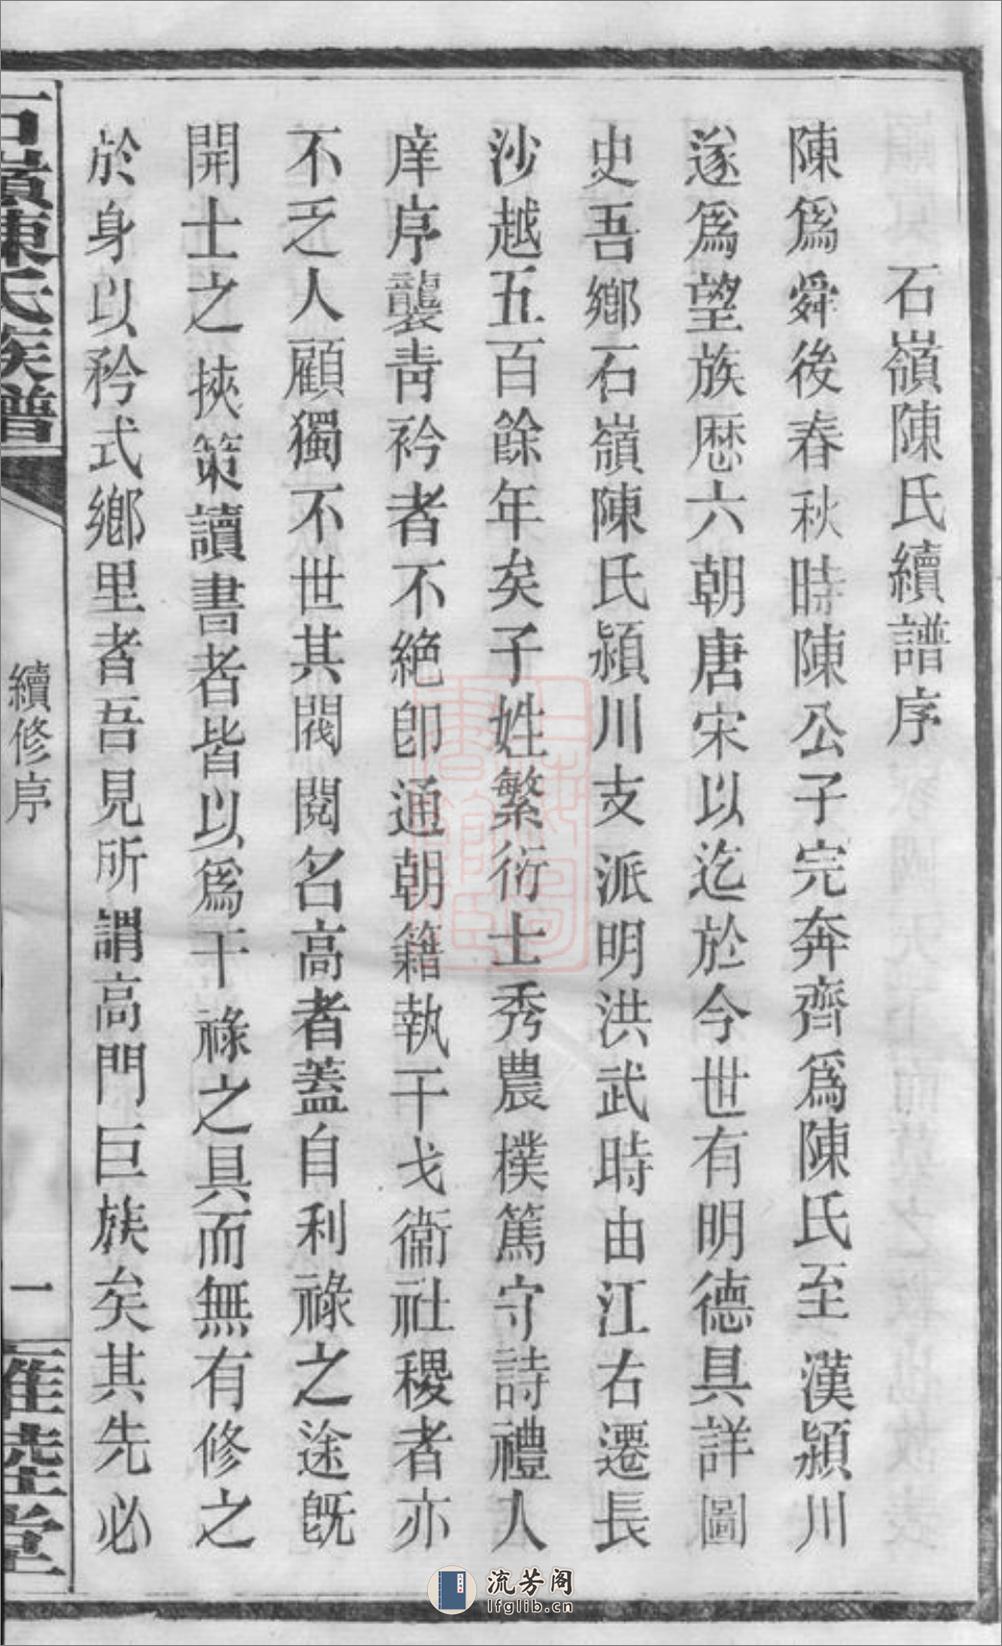 石嶺陳氏續譜序
陳爲舜後春秋時陳公子完奔齊爲陳氏至漢潁川
遂爲望族歷六朝唐宋以迄於今世有明德具詳圖
史吾鄉石嶺陳氏潁川支派明洪武時由江右遷長
沙越五百餘年矣子姓繁衍士秀農樸篤守詩禮人
庠序襲青衿者不絕卽通朝籍執干戈衞社稷者亦
不乏人顧獨不世其閥閱名高者蓋自利祿之途旣
開士之挾策讀書者皆以爲干祿之具而無有修之
於身以矜式鄉里者吾見所謂高門巨族矣其先必
石嶺陳氏族譜
續修序
一
流芳阁
lfglib.cn